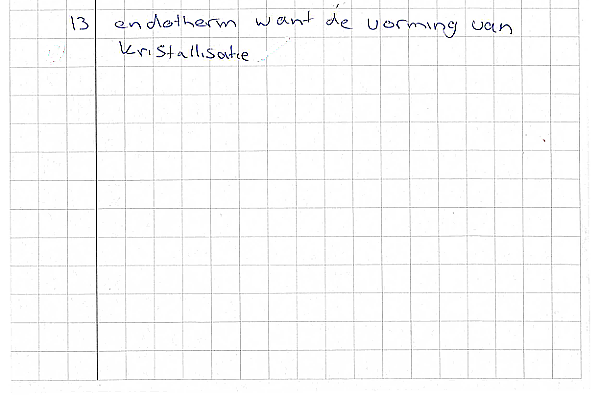 13 endotherm want de vorming van
kristallisatie